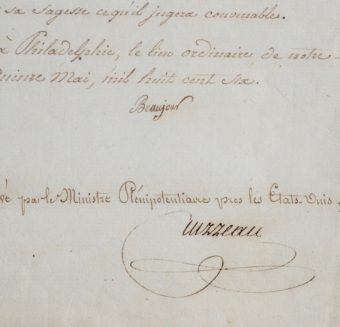 sa Sagesse ce qu'il jugera convenable.
à Philadelphie, le lieu ordinaire de notre
quinze Mai, mil huit cent six.
Beaujour
par le Ministre Plénipotentiaire pres les Etats-Unis